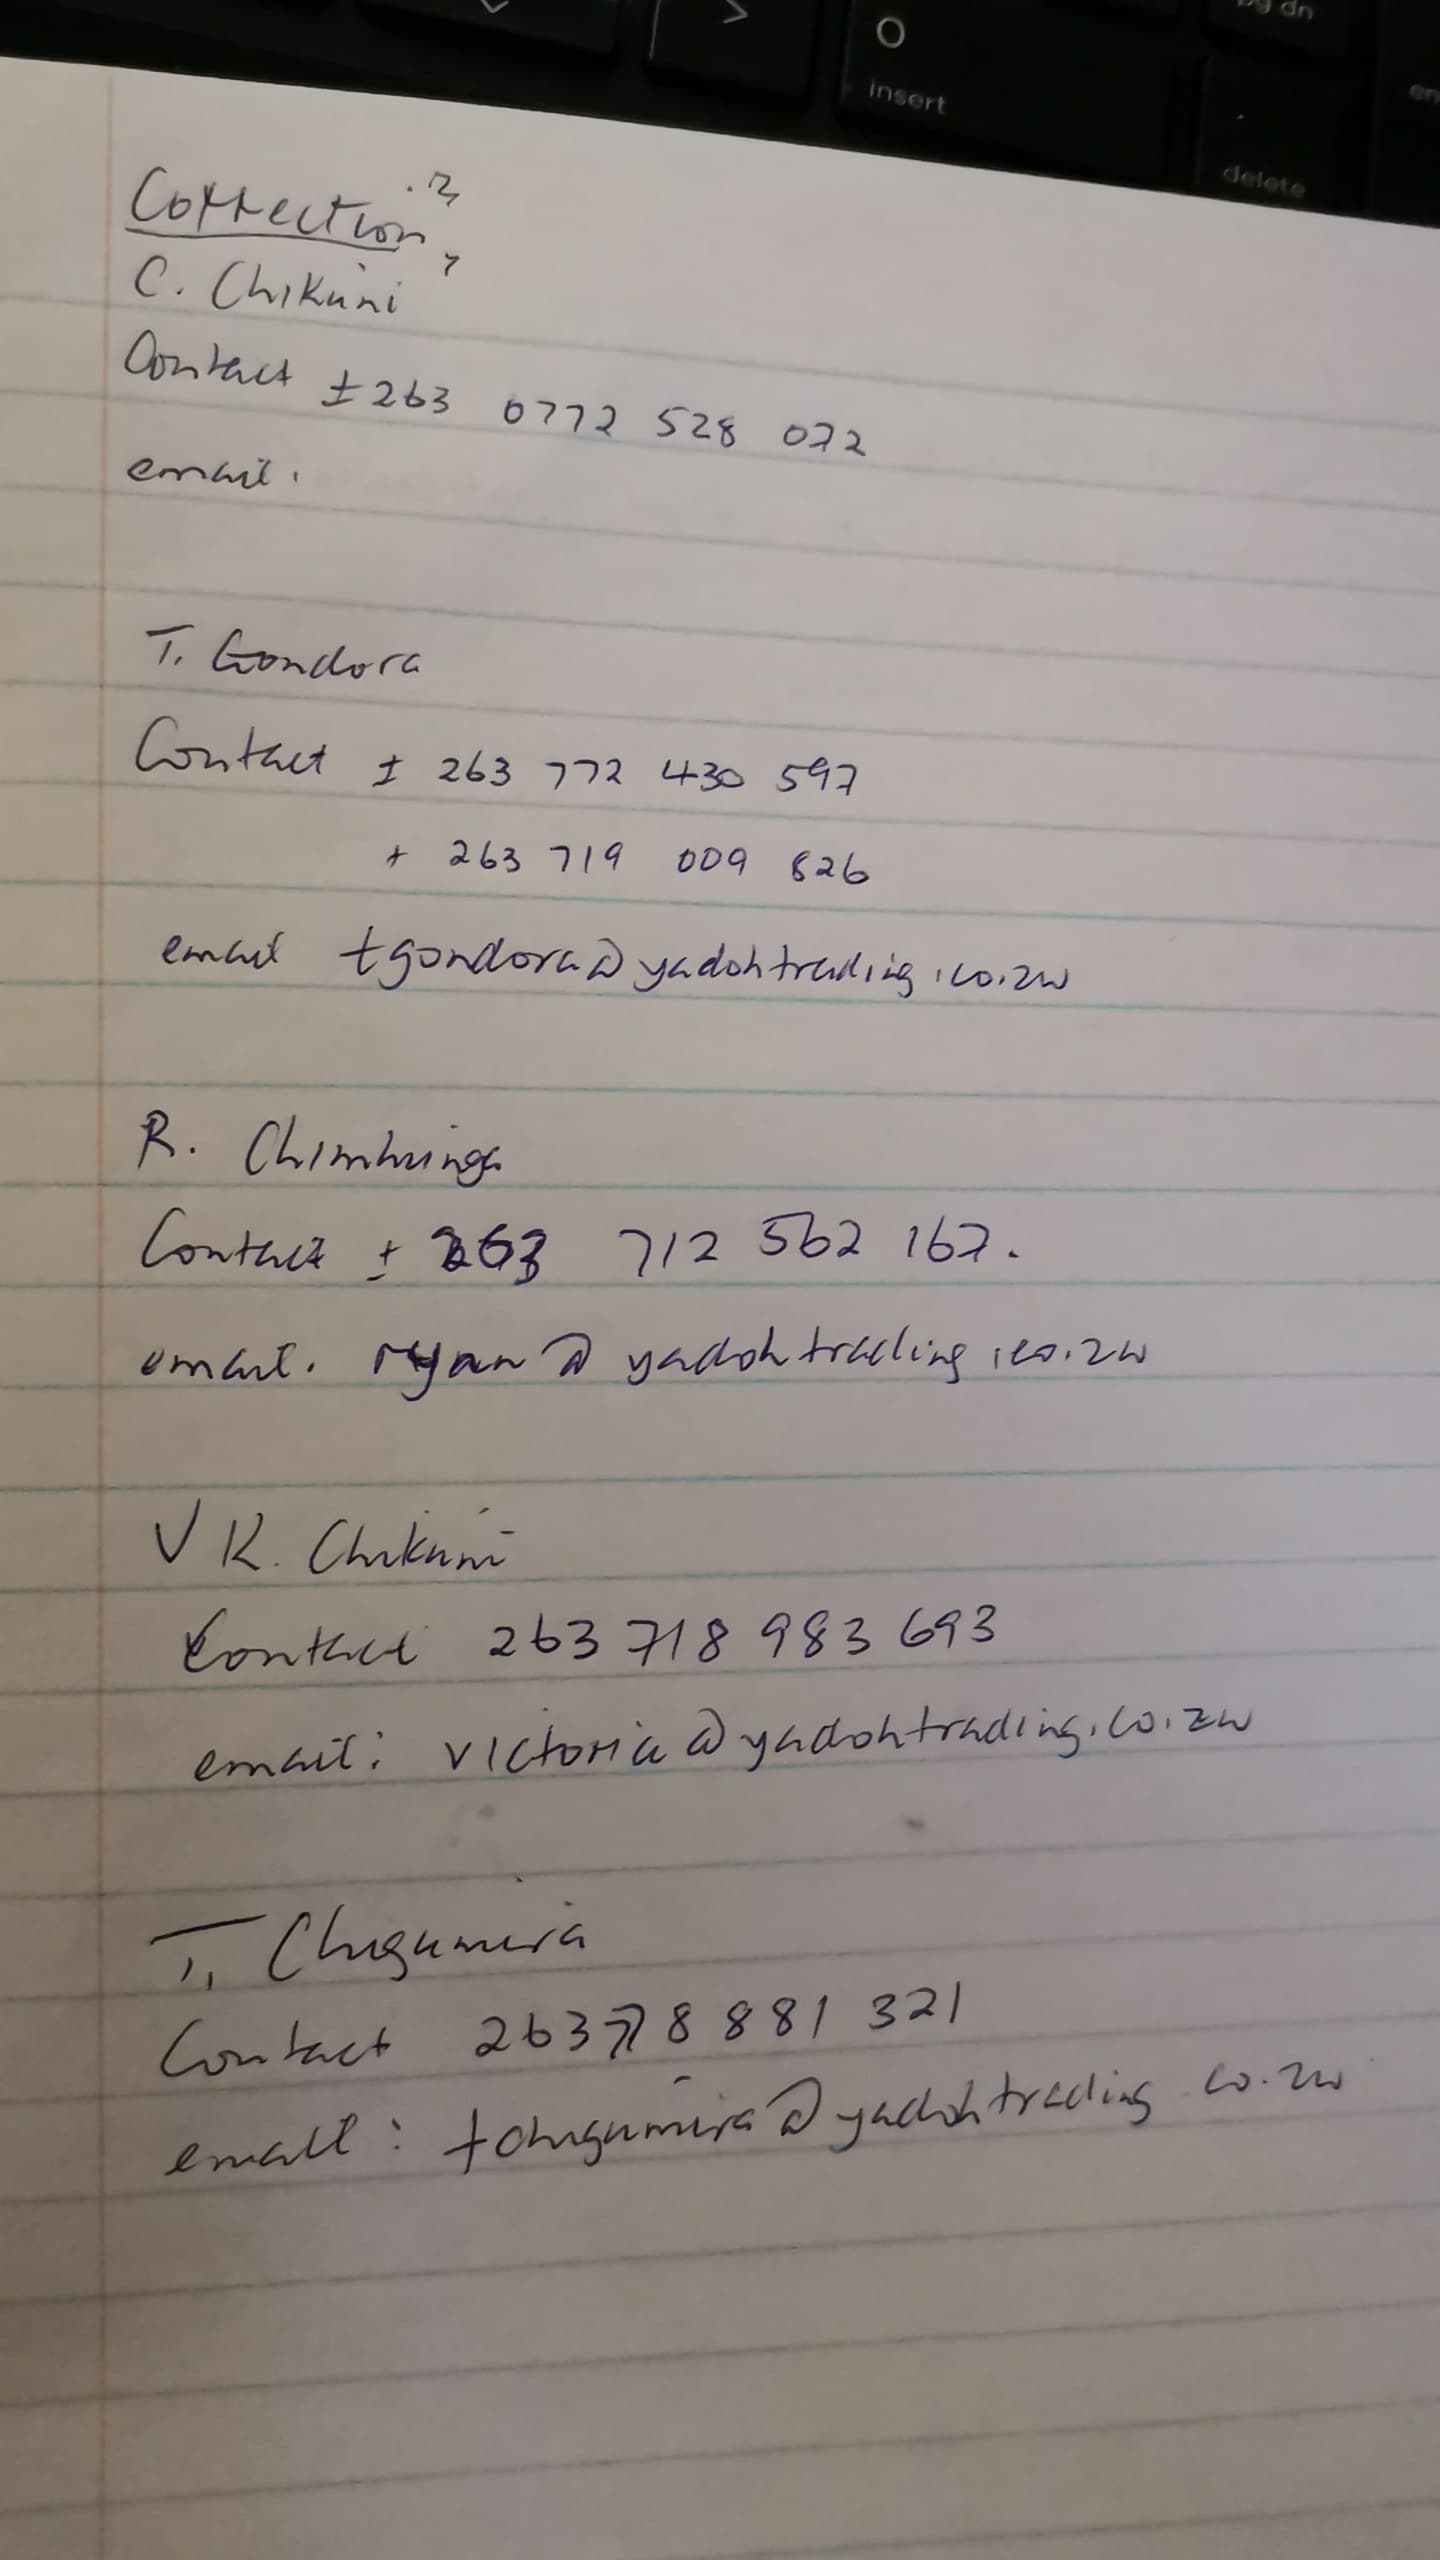 O
insert
pg dn
delete
Correction
C. Chikuni
Contact ±263 0772 528 072
email.
T. Gondora
Contact ± 263 772 430 597
+ 263 719 009 826
email tgondora@yadohtrading.co.zw
R. Chimhinga
Contact ± 263 712 562 167.
email. ryan@yadohtrading.co.zw
V K. Chikuni
Contact 263 718 983 693
email: victoria@yadohtrading.co.zw
T. Chigumira
Contact 263 78 881 321
email: tchigumira@yadohtrading.co.zw